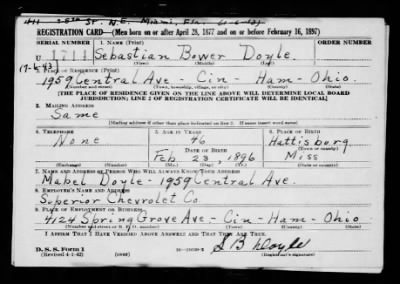 St. N.E. Miami, Fla.
REGISTRATION CARD—(Men born on or after April 28, 1877 and on or before February 16, 1897)
SERIAL NUMBER 1. NAME (Print)
U 1711 Sebastian Bower Doyle
(First) (Middle) (Last)
2. PLACE OF RESIDENCE (Print)
1959 Central Ave. Cin - Ham - Ohio.
(Number and street) (Town, township, village, or city) (County) (State)
[THE PLACE OF RESIDENCE GIVEN ON THE LINE ABOVE WILL DETERMINE LOCAL BOARD
JURISDICTION; LINE 2 OF REGISTRATION CERTIFICATE WILL BE IDENTICAL]
3. MAILING ADDRESS
Same
[Mailing address if other than place indicated on line 2. If same insert word same]
4. TELEPHONE 5. AGE IN YEARS 6. PLACE OF BIRTH
None 46 Hattisburg
DATE OF BIRTH (Town or county)
Feb 23, 1896 Miss
(Exchange) (Number) (Mo.) (Day) (Yr.) (State or country)
7. NAME AND ADDRESS OF PERSON WHO WILL ALWAYS KNOW YOUR ADDRESS
Mabel Doyle - 1959 Central Ave.
8. EMPLOYER'S NAME AND ADDRESS
Superior Chevrolet Co
9. PLACE OF EMPLOYMENT OR BUSINESS
4124 Spring Grove Ave - Cin - Ham - Ohio
(Number and street or R. F. D. number) (Town) (County) (State)
I AFFIRM THAT I HAVE VERIFIED ABOVE ANSWERS AND THAT THEY ARE TRUE.
S B Doyle
D. S. S. Form 1
(Revised 4-1-42) (over) (Registrant's signature)